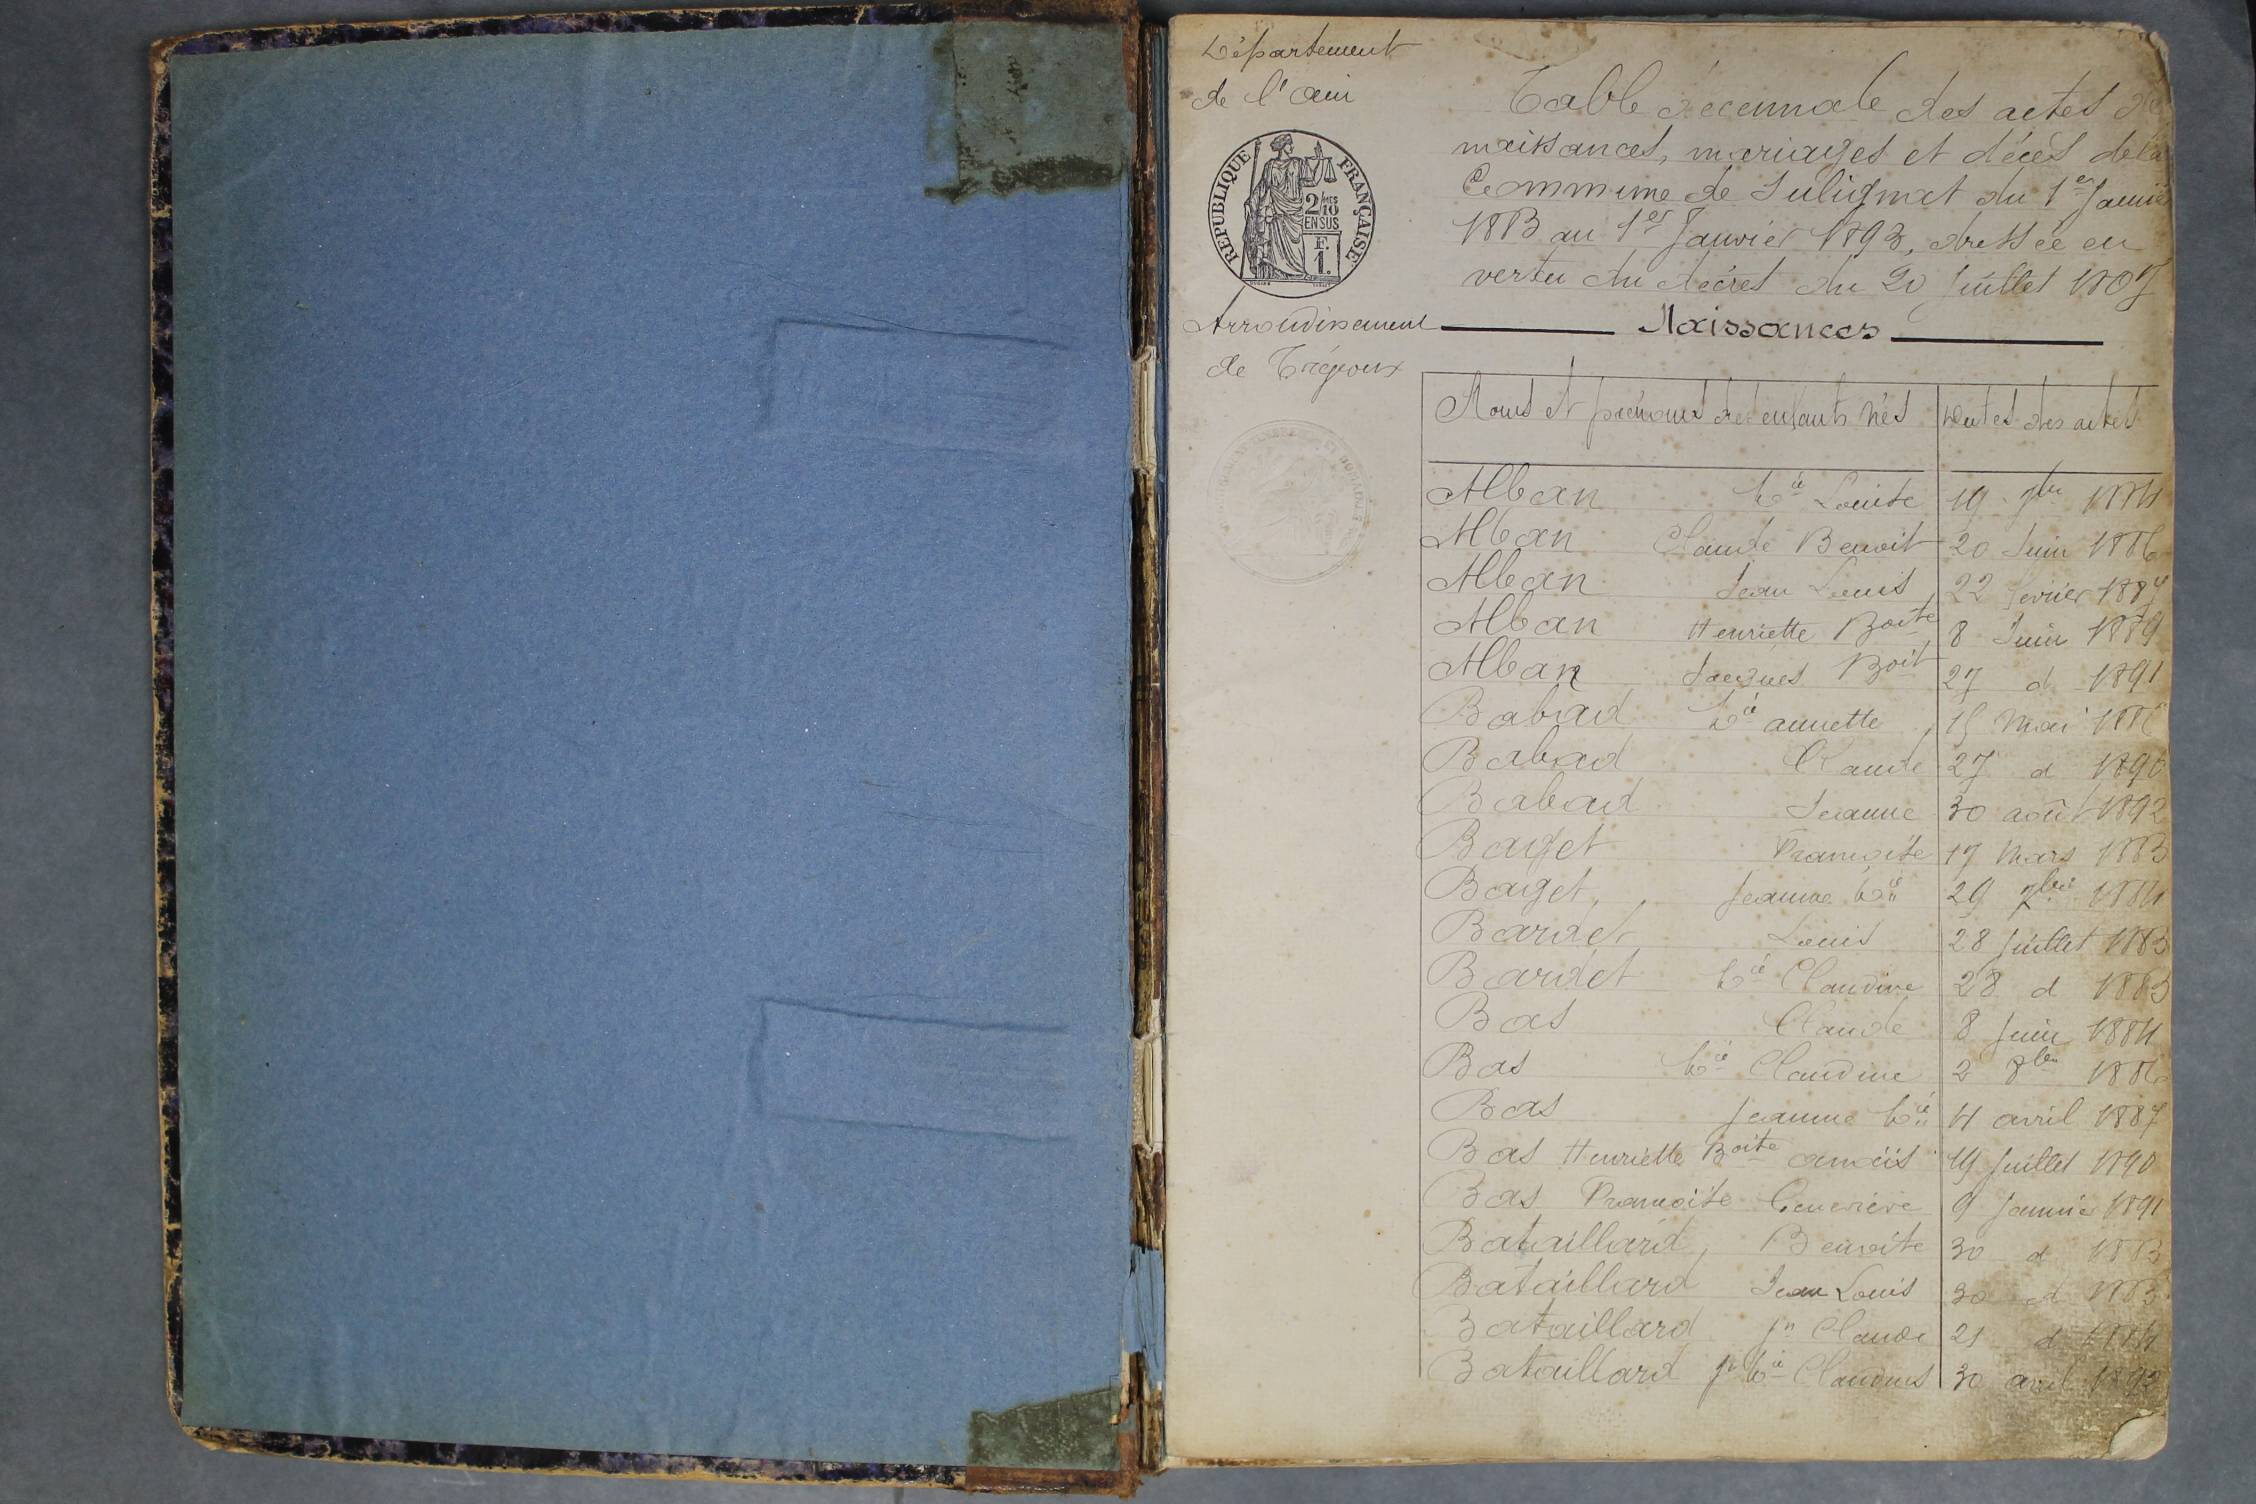 Département
de l'ain
RÉPUBLIQUE FRANÇAISE
2/10 MES
EN SUS
F.
1.
Arrondissement
de Trévoux
Table décennale des actes de
naissances, mariages et décès de la
Commune de Sulignat du 1er Janvier
1883 au 1er Janvier 1893, dressée en
vertu du décret du 20 Juillet 1807
Naissances
Noms et prénoms des enfants nés Dates des actes
Alban Mie Louise 19 7bre 1884
Alban Claude Benoit 20 Juin 1886
Alban Jean Louis 22 février 1887
Alban Henriette Boite 8 Juin 1889
Alban Jacques Boit 27 d 1891
Babad Mie annette 15 Mai
Babad Claude 27 d 1890
Babad Jeanne 30 août 1892
Baget Françoise 17 Mars 1883
Baget Jeanne Mie 29 7bre 1884
Bardet Louis 28 Juillet 1883
Bardet Mie Claudine 28 d 1883
Bas Claude 8 Juin 1884
Bas Mie Claudine 2 8bre 1886
Bas Jeanne Mie 4 avril 1887
Bas Henriette Boite 19 Juillet 1890
Bas Françoise Geneviève 9 Janvier 1891
Bataillard Benoite 30 d 1883
Bataillard Jean Louis 30 d 1883
Bataillard Jn Claude 21 d 1884
Bataillard Mie 30 avril 1892